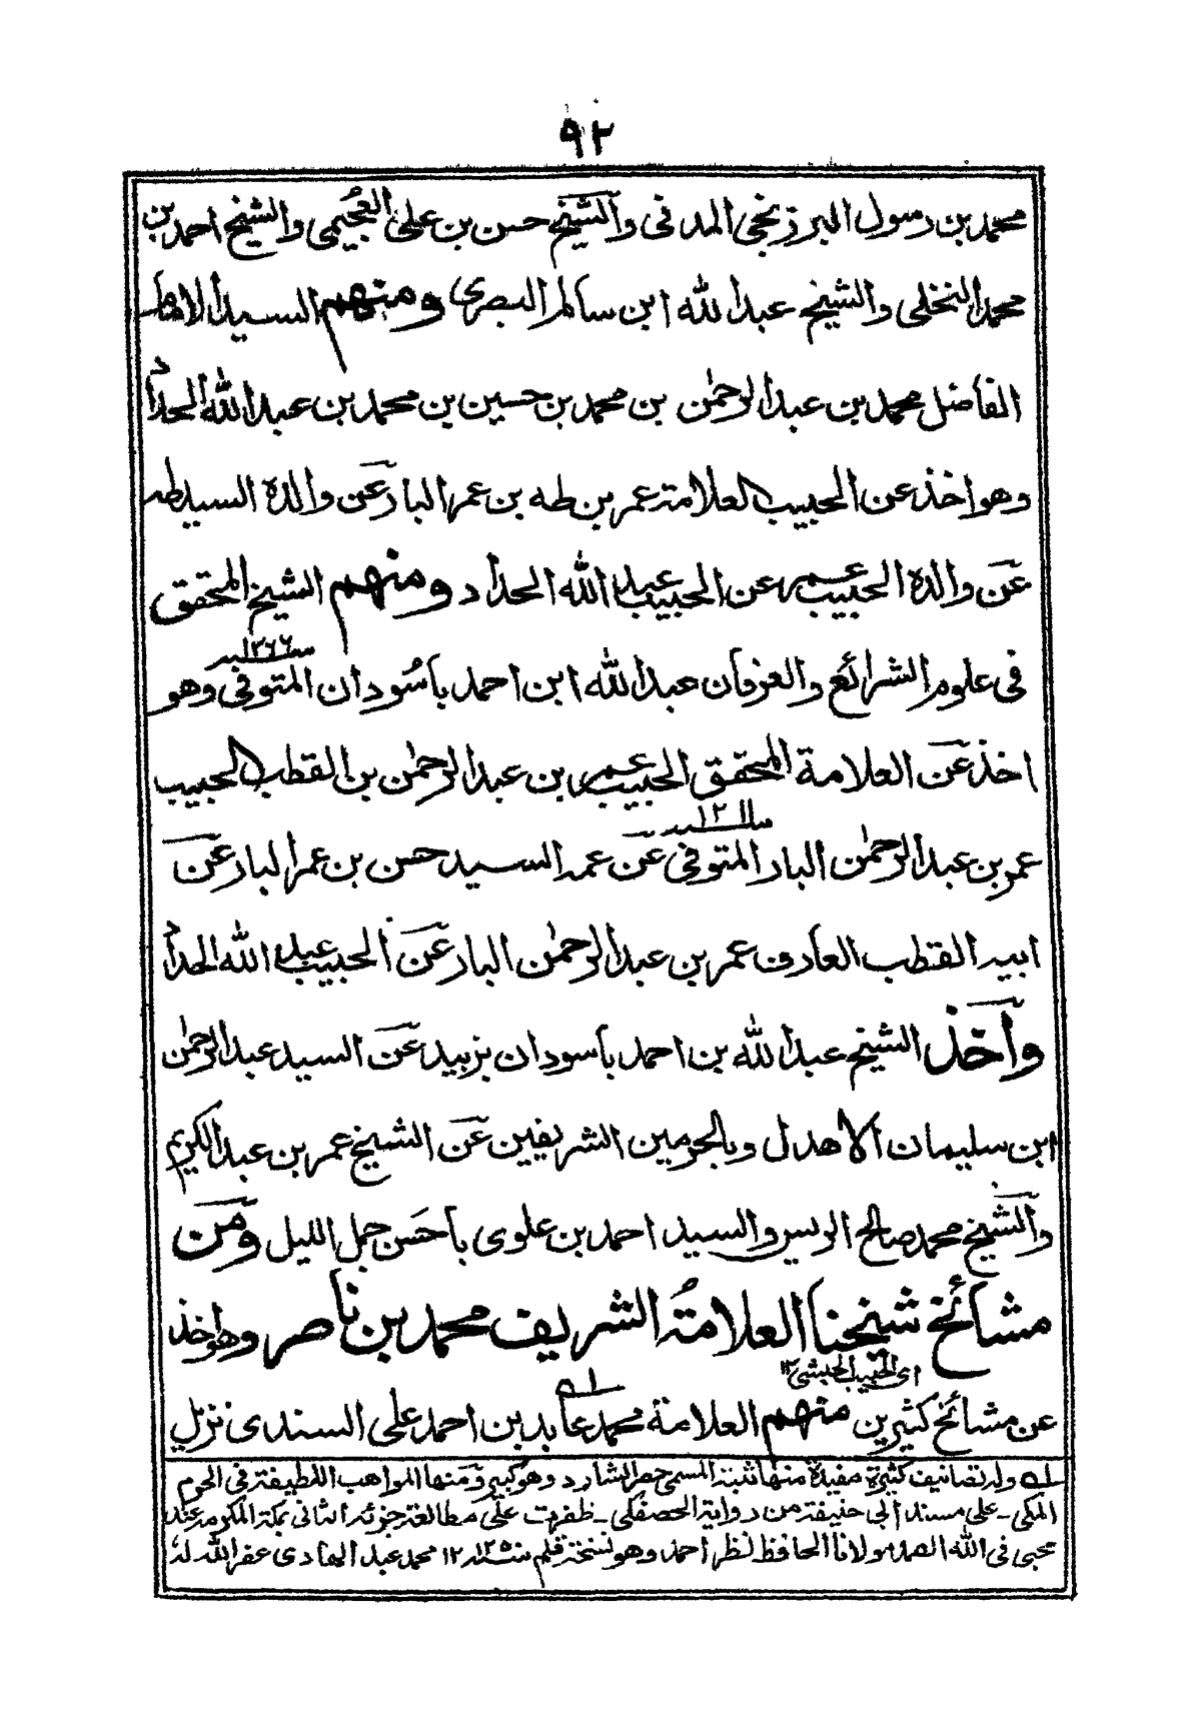 ٩٢
محمد بن رسول البرزنجى المدنى والشيخ حسن بن على العجيمى والشيخ احمد بن
محمد النخلى والشيخ عبد الله ابن سالم البصرى ومنهم السيد الامام
الفاضل محمد بن عبد الرحمٰن بن محمد بن حسين بن محمد بن عبد الله الحداد
وهو اخذ عن الحبيب العلامة عمر بن طه بن عمر البار عن والده السيد طه
عن والده الحبيب عمر عن الحبيب عبد الله الحداد ومنهم الشيخ المحقق
فى علوم الشرائع والعرفان عبد الله ابن احمد باسُودان المتوفى سنة ١٢٦٦ وهو
اخذ عن العلامة المحقق الحبيب عمر بن عبد الرحمٰن بن القطب الحبيب
عمر بن عبد الرحمٰن البار المتوفى سنة ١٢١١ عن عمه السيد حسن بن عمر البار عن
ابيه القطب العارف عمر بن عبد الرحمٰن البار عن الحبيب عبد الله الحداد
وأخذ الشيخ عبد الله بن احمد باسودان بزبيد عن السيد عبد الرحمٰن
ابن سليمان الاهدل وبالحرمين الشريفين عن الشيخ عمر بن عبد الكريم
والشيخ محمد صالح الريس والسيد احمد بن علوى باحَسن جمل الليل ومن
مشائخ شيخنا العلامةُ الشريف محمد بن ناصر وهو اخذ
اى الحبيب الحبشى ١٢
عن مشائخ كثيرين منهم العلامة محمد عابد بن احمد على السندى نزيل
له وله تصانيف كثيرة مفيدة منها ثبته المسمى حصر الشارد وهو كبير ومنها المواهب اللطيفة فى الحرم
المكى - على مسند ابى حنيفة من رواية الحصفكى - ظفرت على مطالعة جزئه الثانى بمكة المكرمة عند
محبى فى الله الصد مولانا الحافظ نظر احمد وهو نسخة قلم ١٢ محمد عبد الهادى عفر الله له